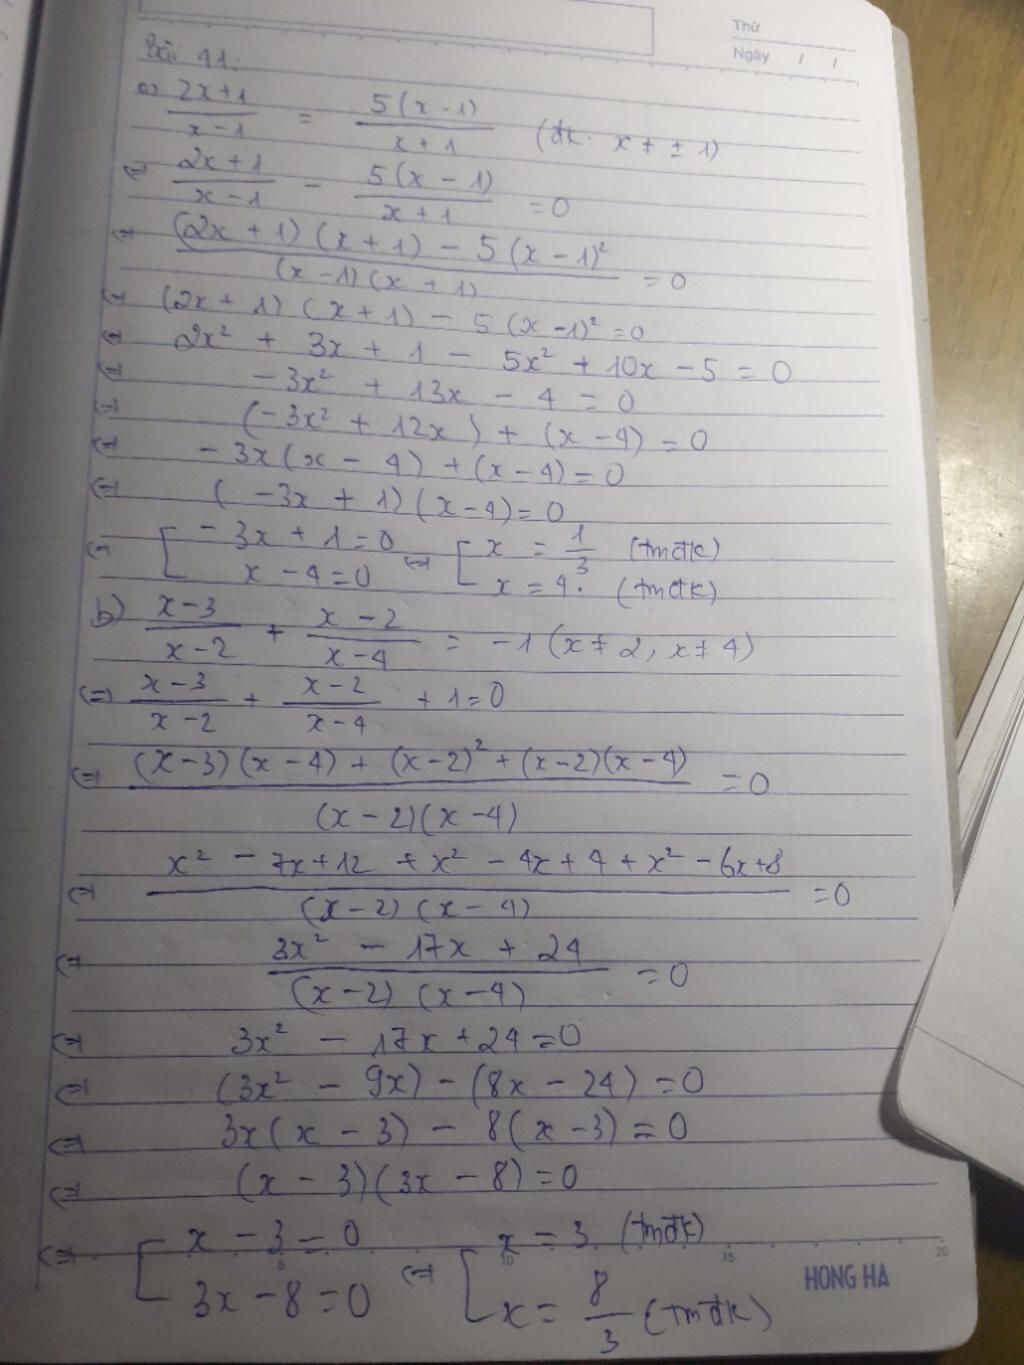 Thứ
Ngày / /
Bài 41.
a) (2x+1)/(x-1) = 5(x-1)/(x+1) (đk: x ≠ ± 1)
⇔ (2x+1)/(x-1) - 5(x-1)/(x+1) = 0
⇔ ((2x+1)(x+1) - 5(x-1)²)/((x-1)(x+1)) = 0
⇔ (2x+1)(x+1) - 5(x-1)² = 0
⇔ 2x² + 3x + 1 - 5x² + 10x - 5 = 0
⇔ -3x² + 13x - 4 = 0
⇔ (-3x² + 12x) + (x-4) = 0
⇔ -3x(x-4) + (x-4) = 0
⇔ (-3x+1)(x-4) = 0
⇔ [ -3x+1=0 ⇔ [ x = 1/3 (tmđk)
x-4=0 x=4. (tmđk)
b) (x-3)/(x-2) + (x-2)/(x-4) = -1 (x ≠ 2, x ≠ 4)
⇔ (x-3)/(x-2) + (x-2)/(x-4) + 1 = 0
⇔ ((x-3)(x-4) + (x-2)² + (x-2)(x-4))/((x-2)(x-4)) = 0
⇔ (x² - 7x + 12 + x² - 4x + 4 + x² - 6x + 8)/((x-2)(x-4)) = 0
⇔ (3x² - 17x + 24)/((x-2)(x-4)) = 0
⇔ 3x² - 17x + 24 = 0
⇔ (3x² - 9x) - (8x - 24) = 0
⇔ 3x(x-3) - 8(x-3) = 0
⇔ (x-3)(3x-8) = 0
⇔ [ x-3=0 ⇔ [ x = 3 (tmđk)
3x-8=0 x = 8/3 (tmđk)
5 10 15 20
HONG HA